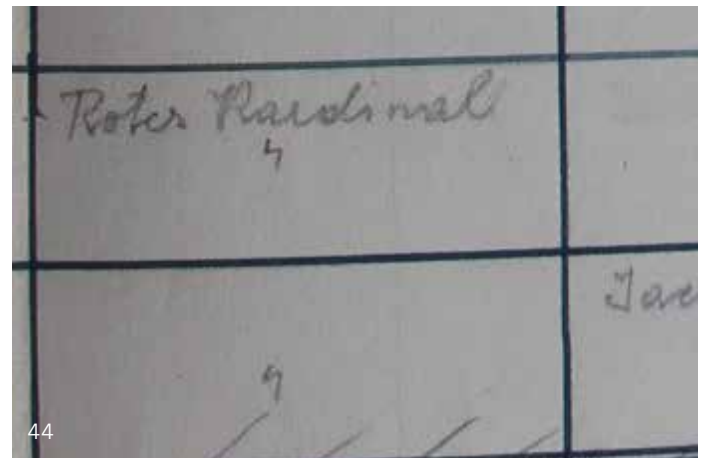 Roter Kardinal
"
"
44